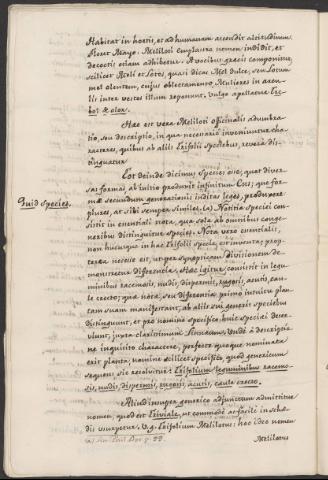 Habitat in hortis, et ad humanam accedit altitudinem
Floret Mayo. Meliloti emplastra nomen indidit, et
decoctis etiam adhibetur. A vocibus graecis componitur,
scilicet Meli et Lotos, quasi dicas Mel dulce, seu Lotum
mel olentem, enjus oblectamento Mulieres in aren-
lis inter vestes illum reponunt. Vulgo apellatur Tre-
bol de olor.
Haec est vera Meliloti officinalis adumbra-
tio, seu descriptio, in qua necessario inveniuntur cha-
racteres, quibus ab aliis Trifolii speciebus, revera dis-
tinguatur
Quid Species.
Tot deinde dicimus Species esse, quot diver-
sas formas ab initio produxit infinitum Ens; quae for-
mae secundum generationis inditas leges, produxere
plures, at sibi semper similes. (a) Notitia Speciei con-
sistit in essentiali nota, qua sola ab omnibus conge-
neribus distinguitur species. Nota vero essentialis,
non hucusque in hac Trifolii specie, est inventa; prop-
terea necesse est, ut per Synopticam Divisionem de-
monstretur differentia. Haec igitur consistit in legu-
minibus racemosis, nudis, dispermis, rugosis, acutis, cau-
le erecto; quae nota, seu differentia primo intuitu plan-
tam suam manifestant, ab aliis sui generis speciebus
distinguunt, et pro nomine specifico huic speciei deser-
viunt, juxta clarissimum Linnaeum. Unde à descriptio-
ne inquisito charactere, perfecte quoque nominata
erit planta; nomine scilicet specifico, quod genericum
sequens sic resolvitur: Trifolium leguminibus racemo-
sis, nudis, dispermis, rugosis, acutis, caule erecto.
Aliud insuper generico adjunctum admittitur
nomen, quod est Triviale, ut commode ac facili in sche-
dis usurpetur. V.g. Trifolium Melilotus: hoc ideo nomen
(a) Lin. Phil. Bot. p. 99.
Melilotus